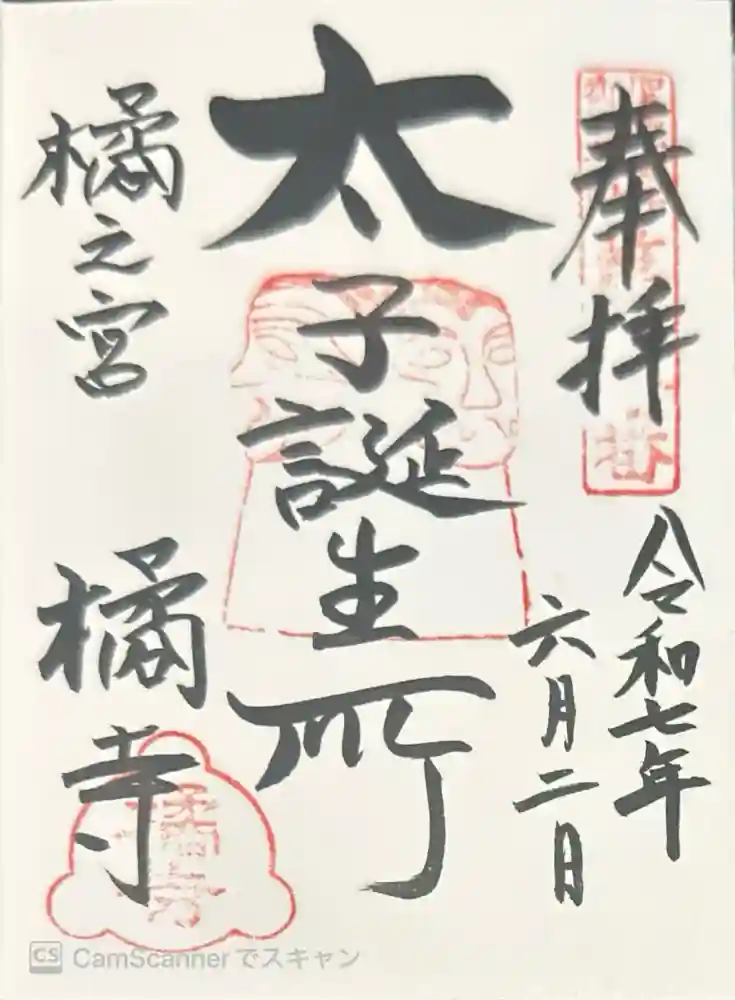 奉拝
令和七年
六月二日
太子誕生所
橘之宮
橘寺
CS CamScannerでスキャン